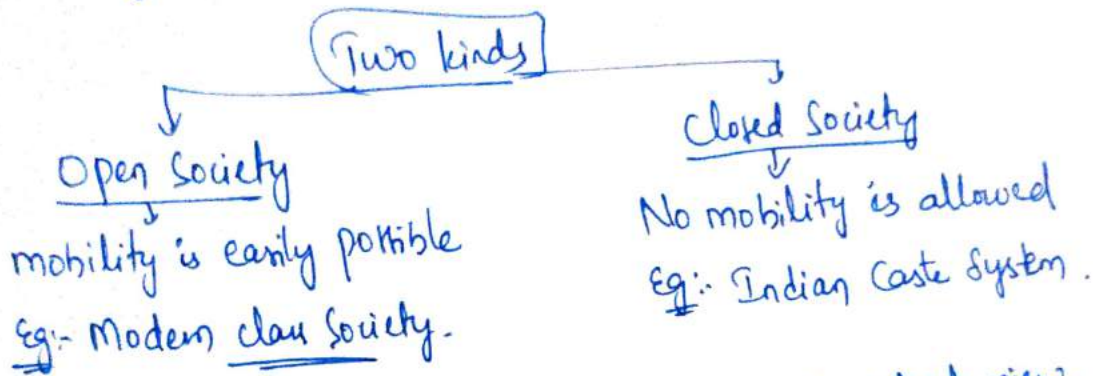 Two kinds
Open Society
mobility is easily possible
Eg:- Modern class Society.
Closed Society
No mobility is allowed
Eg:- Indian Caste System.